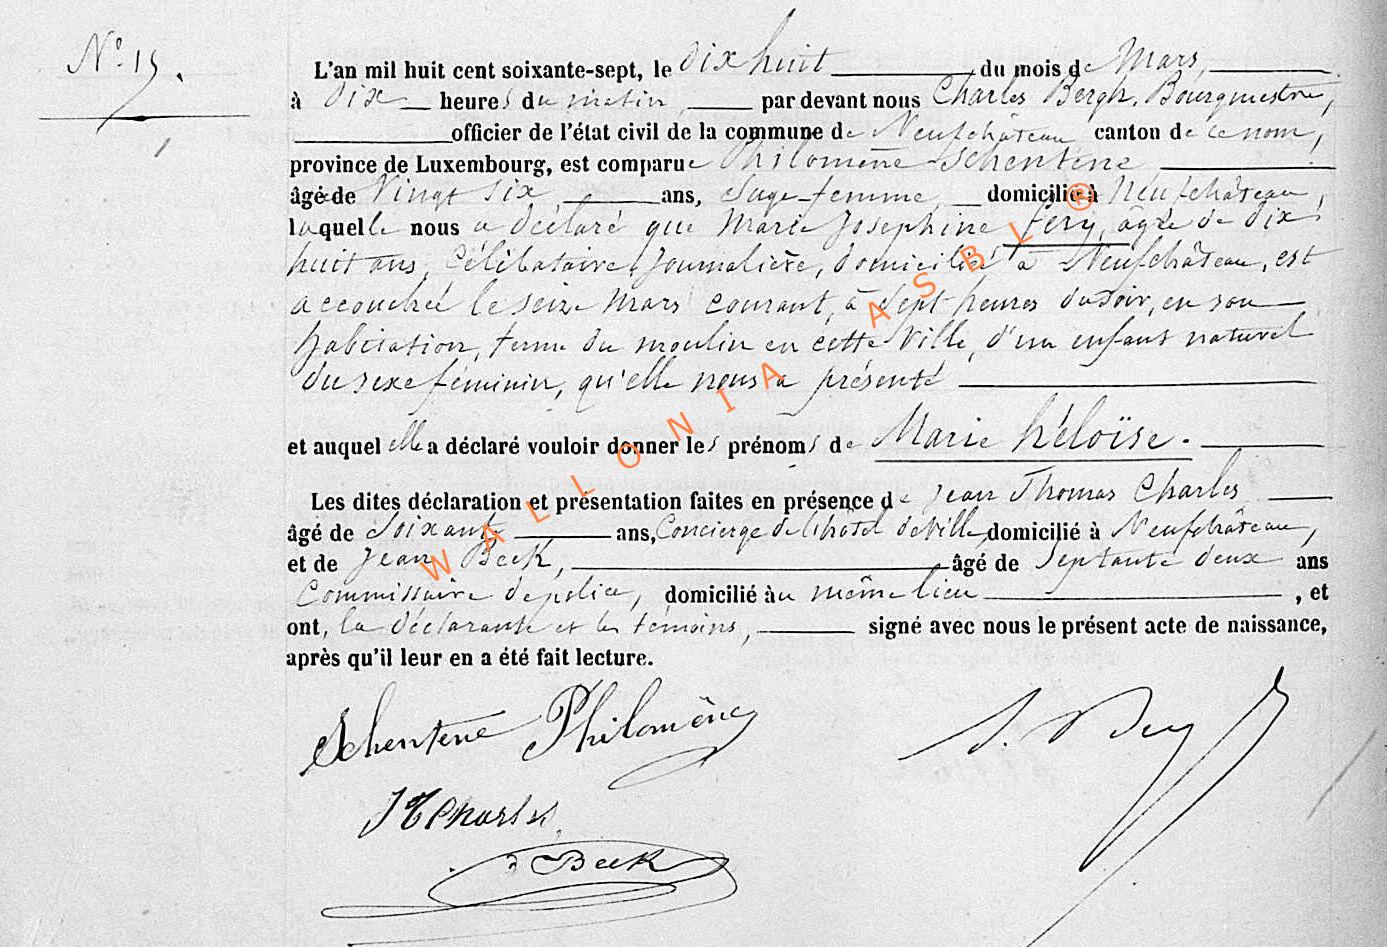 N° 15.
L'an mil huit cent soixante-sept, le dix huit du mois de Mars,
à Dix heures du matin, par devant nous Charles Bergh, Bourgmestre,
officier de l'état civil de la commune de Neufchâteau canton de ce nom,
province de Luxembourg, est comparue Philomène Schentene
âgée de Vingt six ans, Sage-femme, domicilié à Neufchâteau,
laquelle nous a déclaré que Marie Josephine Fery, agée de dix
huit ans, Célibataire, Journalière, domiciliée à Neufchâteau, est
accouchée le seize Mars courant, à Sept heures du soir, en son
habitation, du moulin en cette Ville, d'un enfant naturel
du sexe féminin, qu'elle nous a présenté
et auquel elle a déclaré vouloir donner les prénoms de Marie héloïse.
Les dites déclaration et présentation faites en présence de Jean Thomas Charles
âgé de Soixante ans, Concierge de l'hôtel de Ville, domicilié à Neufchâteau,
et de Jean Beck, âgé de Septante deux ans
Commissaire de police, domicilié au même lieu, et
ont, la déclarante et les témoins, signé avec nous le présent acte de naissance,
après qu'il leur en a été fait lecture.
Schentene Philomène
JTCharles
Beck
WALLONIA ASBL ®